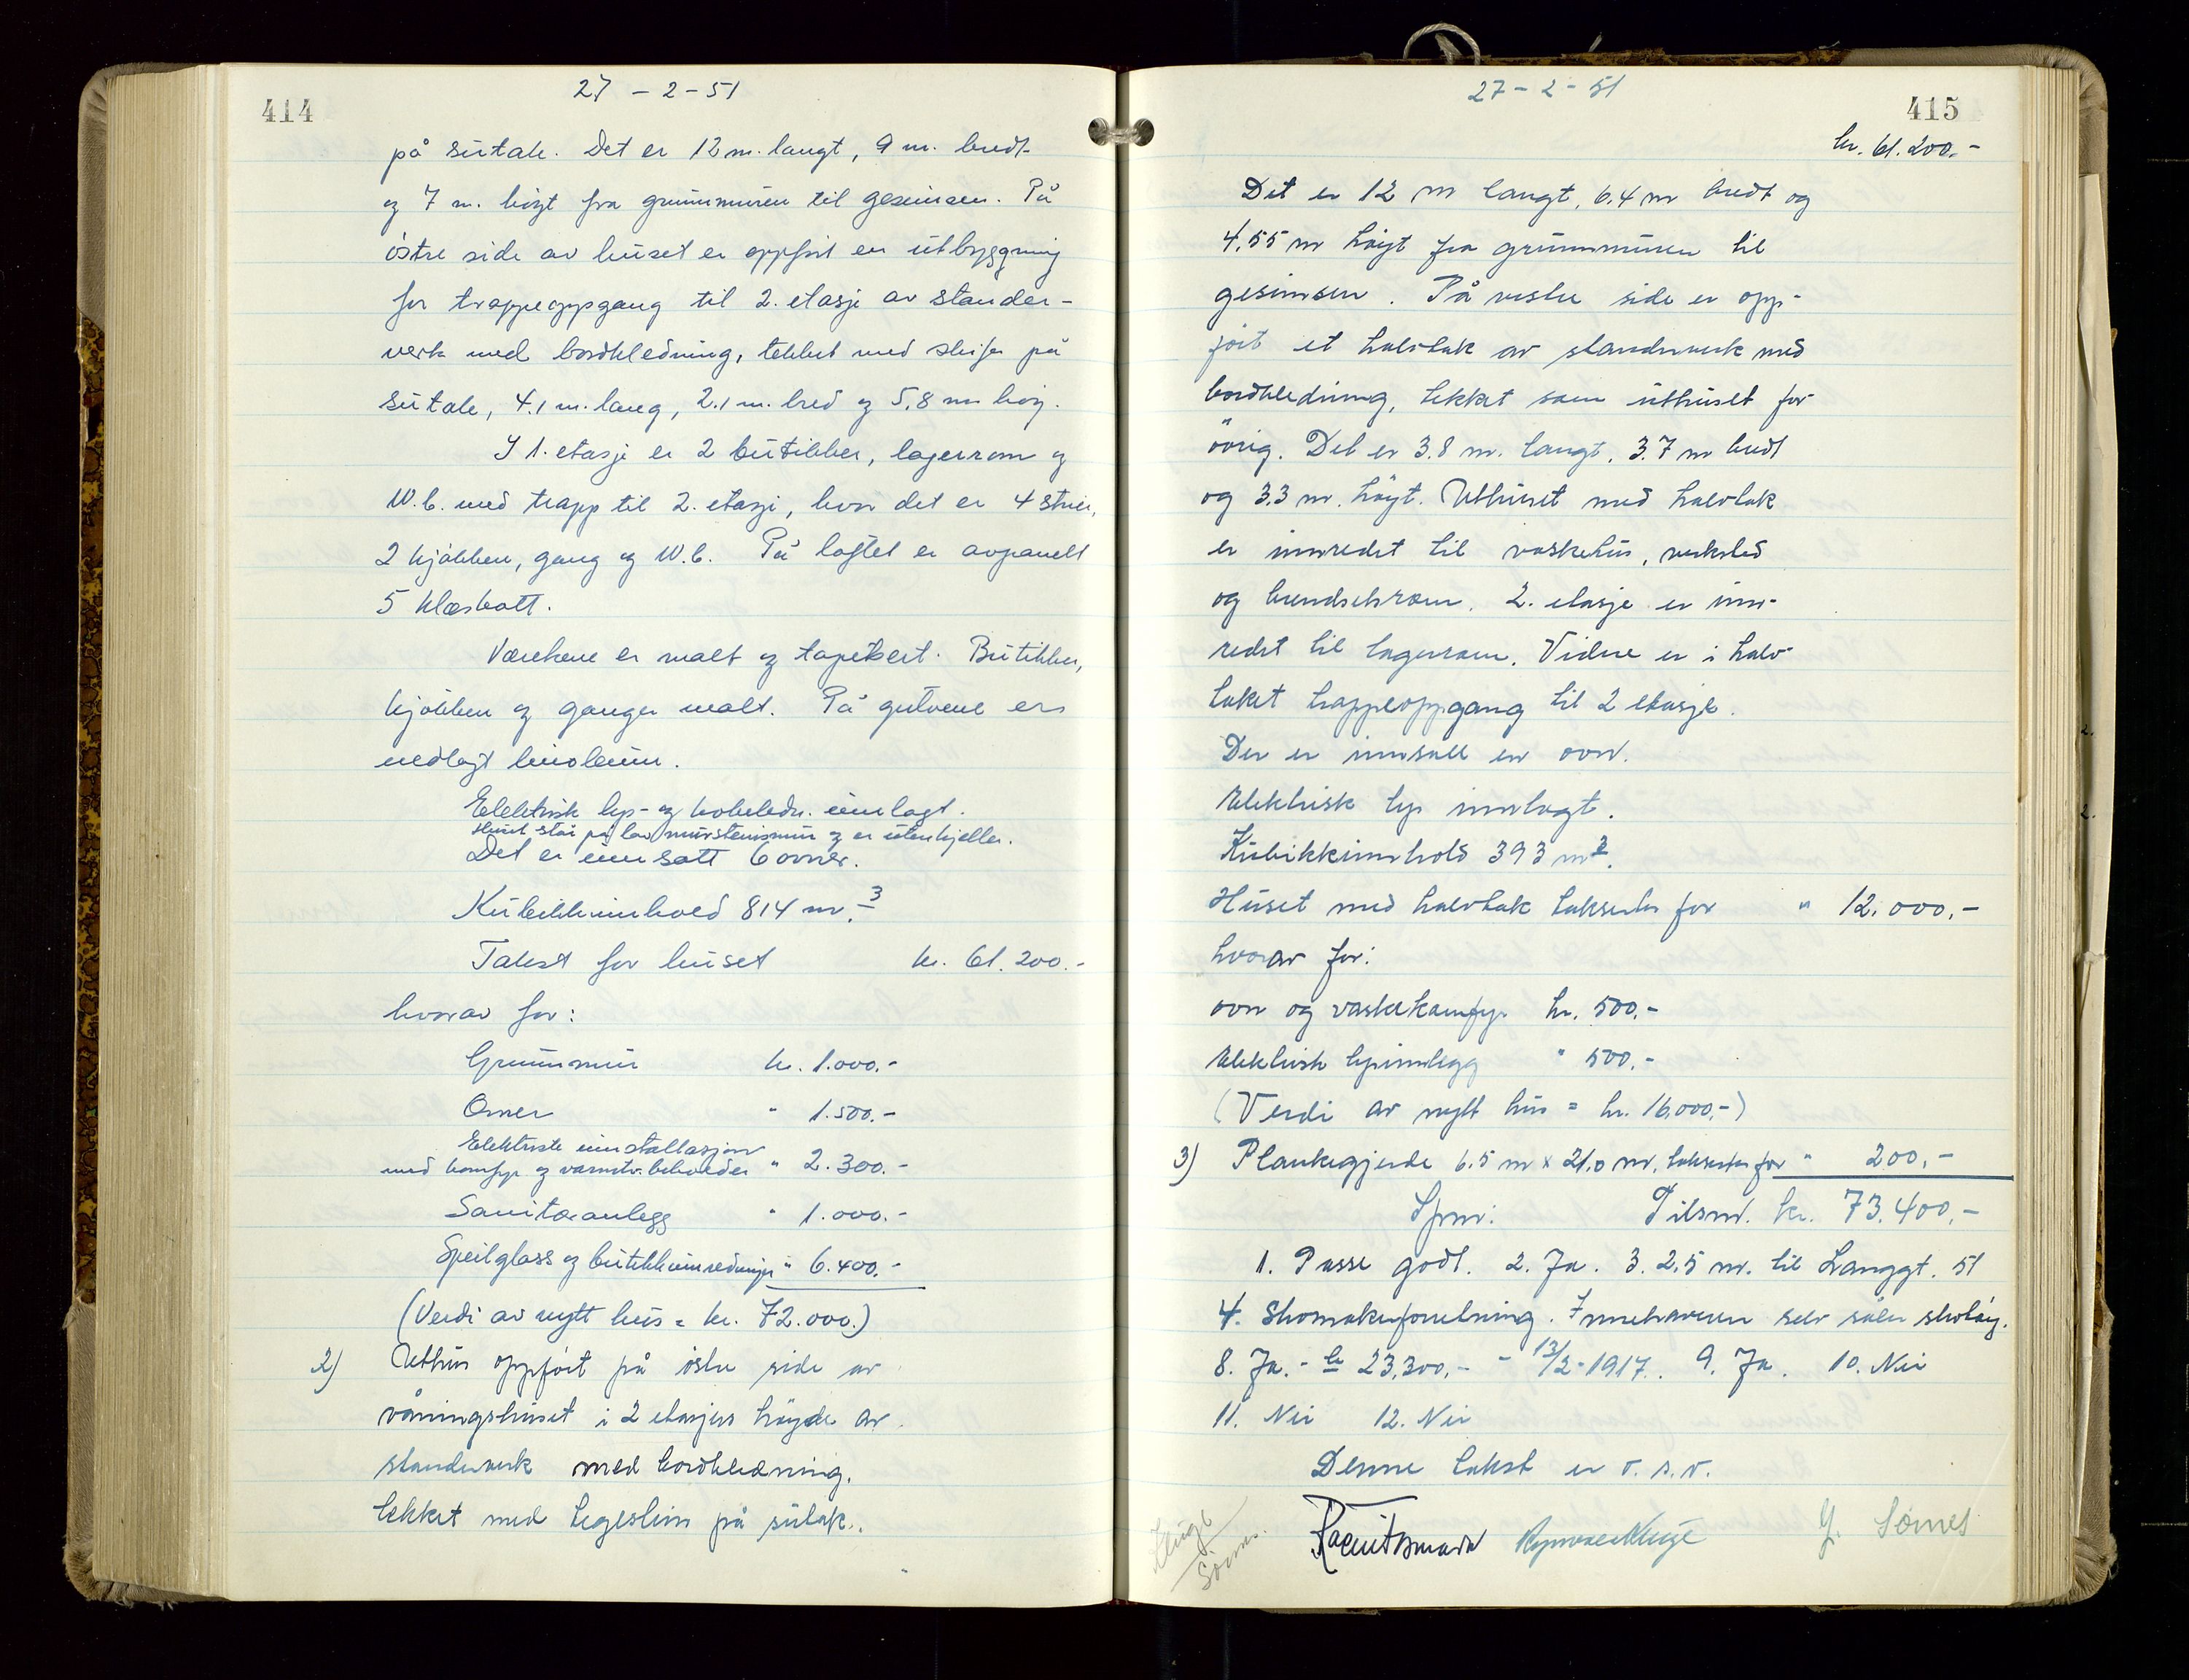 414
27 - 2 - 51
på sutak. Det er 12 m. langt, 9 m. bredt
og 7 m. høgt fra grunnmuren til gesimsen. På
östre side av huset er oppført en utbyggning
for trappeoppgang til 2. etasje av stander-
verk med bordkledning, tekket med skifer på
sutak, 4.1 m. lang, 2.1 m. bred og 5.8 m høg.
I 1. etasje er 2 butikker, lagerrom og
W.C. med trapp til 2. etasje, hvor det er 4 stuer,
2 kjökken, gang og W.C. På loftet er avpanelt
5 klæskott.
Værelsene er malt og tapetsert. Butikker,
kjökken og ganger malt. På gulvene er
nedlagt linoleum.
Elektrisk lys- og kokeledn. innlagt.
Huset står på lav murstensmur og er uten kjeller.
Det er innsatt 6 ovner.
Kubikkinnhold 814 m.3
Takst for huset kr. 61.200.-
hvorav for:
Grunnmur kr. 1.000.-
Ovner " 1.500.-
Elektriske innstallasjon
med komfyr og varmtv.beholder " 2.300.-
Sanitæranlegg " 1.000.-
Speilglass og butikkinnredninger " 6.400.-
(Verdi av nytt hus = kr. 72.000.)
2) Uthus oppfört på östre side av
våningshuset i 2 etasjers høgde av
standerverk med bordkledning,
tekket med teglstein på sutak.
27 - 2 - 51
415
kr. 61.200.-
Det er 12 m langt, 6.4 m bredt og
4.55 m høgt fra grunnmuren til
gesimsen. På vestre side er opp-
ført et halvtak av standerverk med
bordkledning, tekket som uthuset for
övrig. Det er 3.8 m. langt, 3.7 m bredt
og 3.3 m. högt. Uthuset med halvtak
er innredet til vaskehus, verksted
og brendselsrom. 2. etasje er inn-
redet til lagerrom. Videre er i halv-
taket trappeoppgang til 2 etasje.
Der er innsatt en ovn.
Elektrisk lys innlagt.
Kubikkinnhold 393 m3.
Huset med halvtak takseres for " 12.000,-
hvorav for:
ovn og vaskekomfyr kr. 500,-
Elektrisk lysinnlegg " 500,-
(Verdi av nytt hus = kr. 16.000,-)
3) Plankegjerde 6.5 m x 21.0 m, takseres for " 200,-
Spm: Tilsm. kr. 73.400,-
1. Passe godt. 2. Ja. 3. 2.5 m. til Langgt. 51
4. Skomakerforretning. Innehaveren selv såler skotøy.
8. Ja. - kr 23,300,- - 13/2-1917. 9. Ja. 10. Nei
11. Nei 12. Nei
Denne takst er o. s. v.
Kluge
Sømes.
Y. Sømes